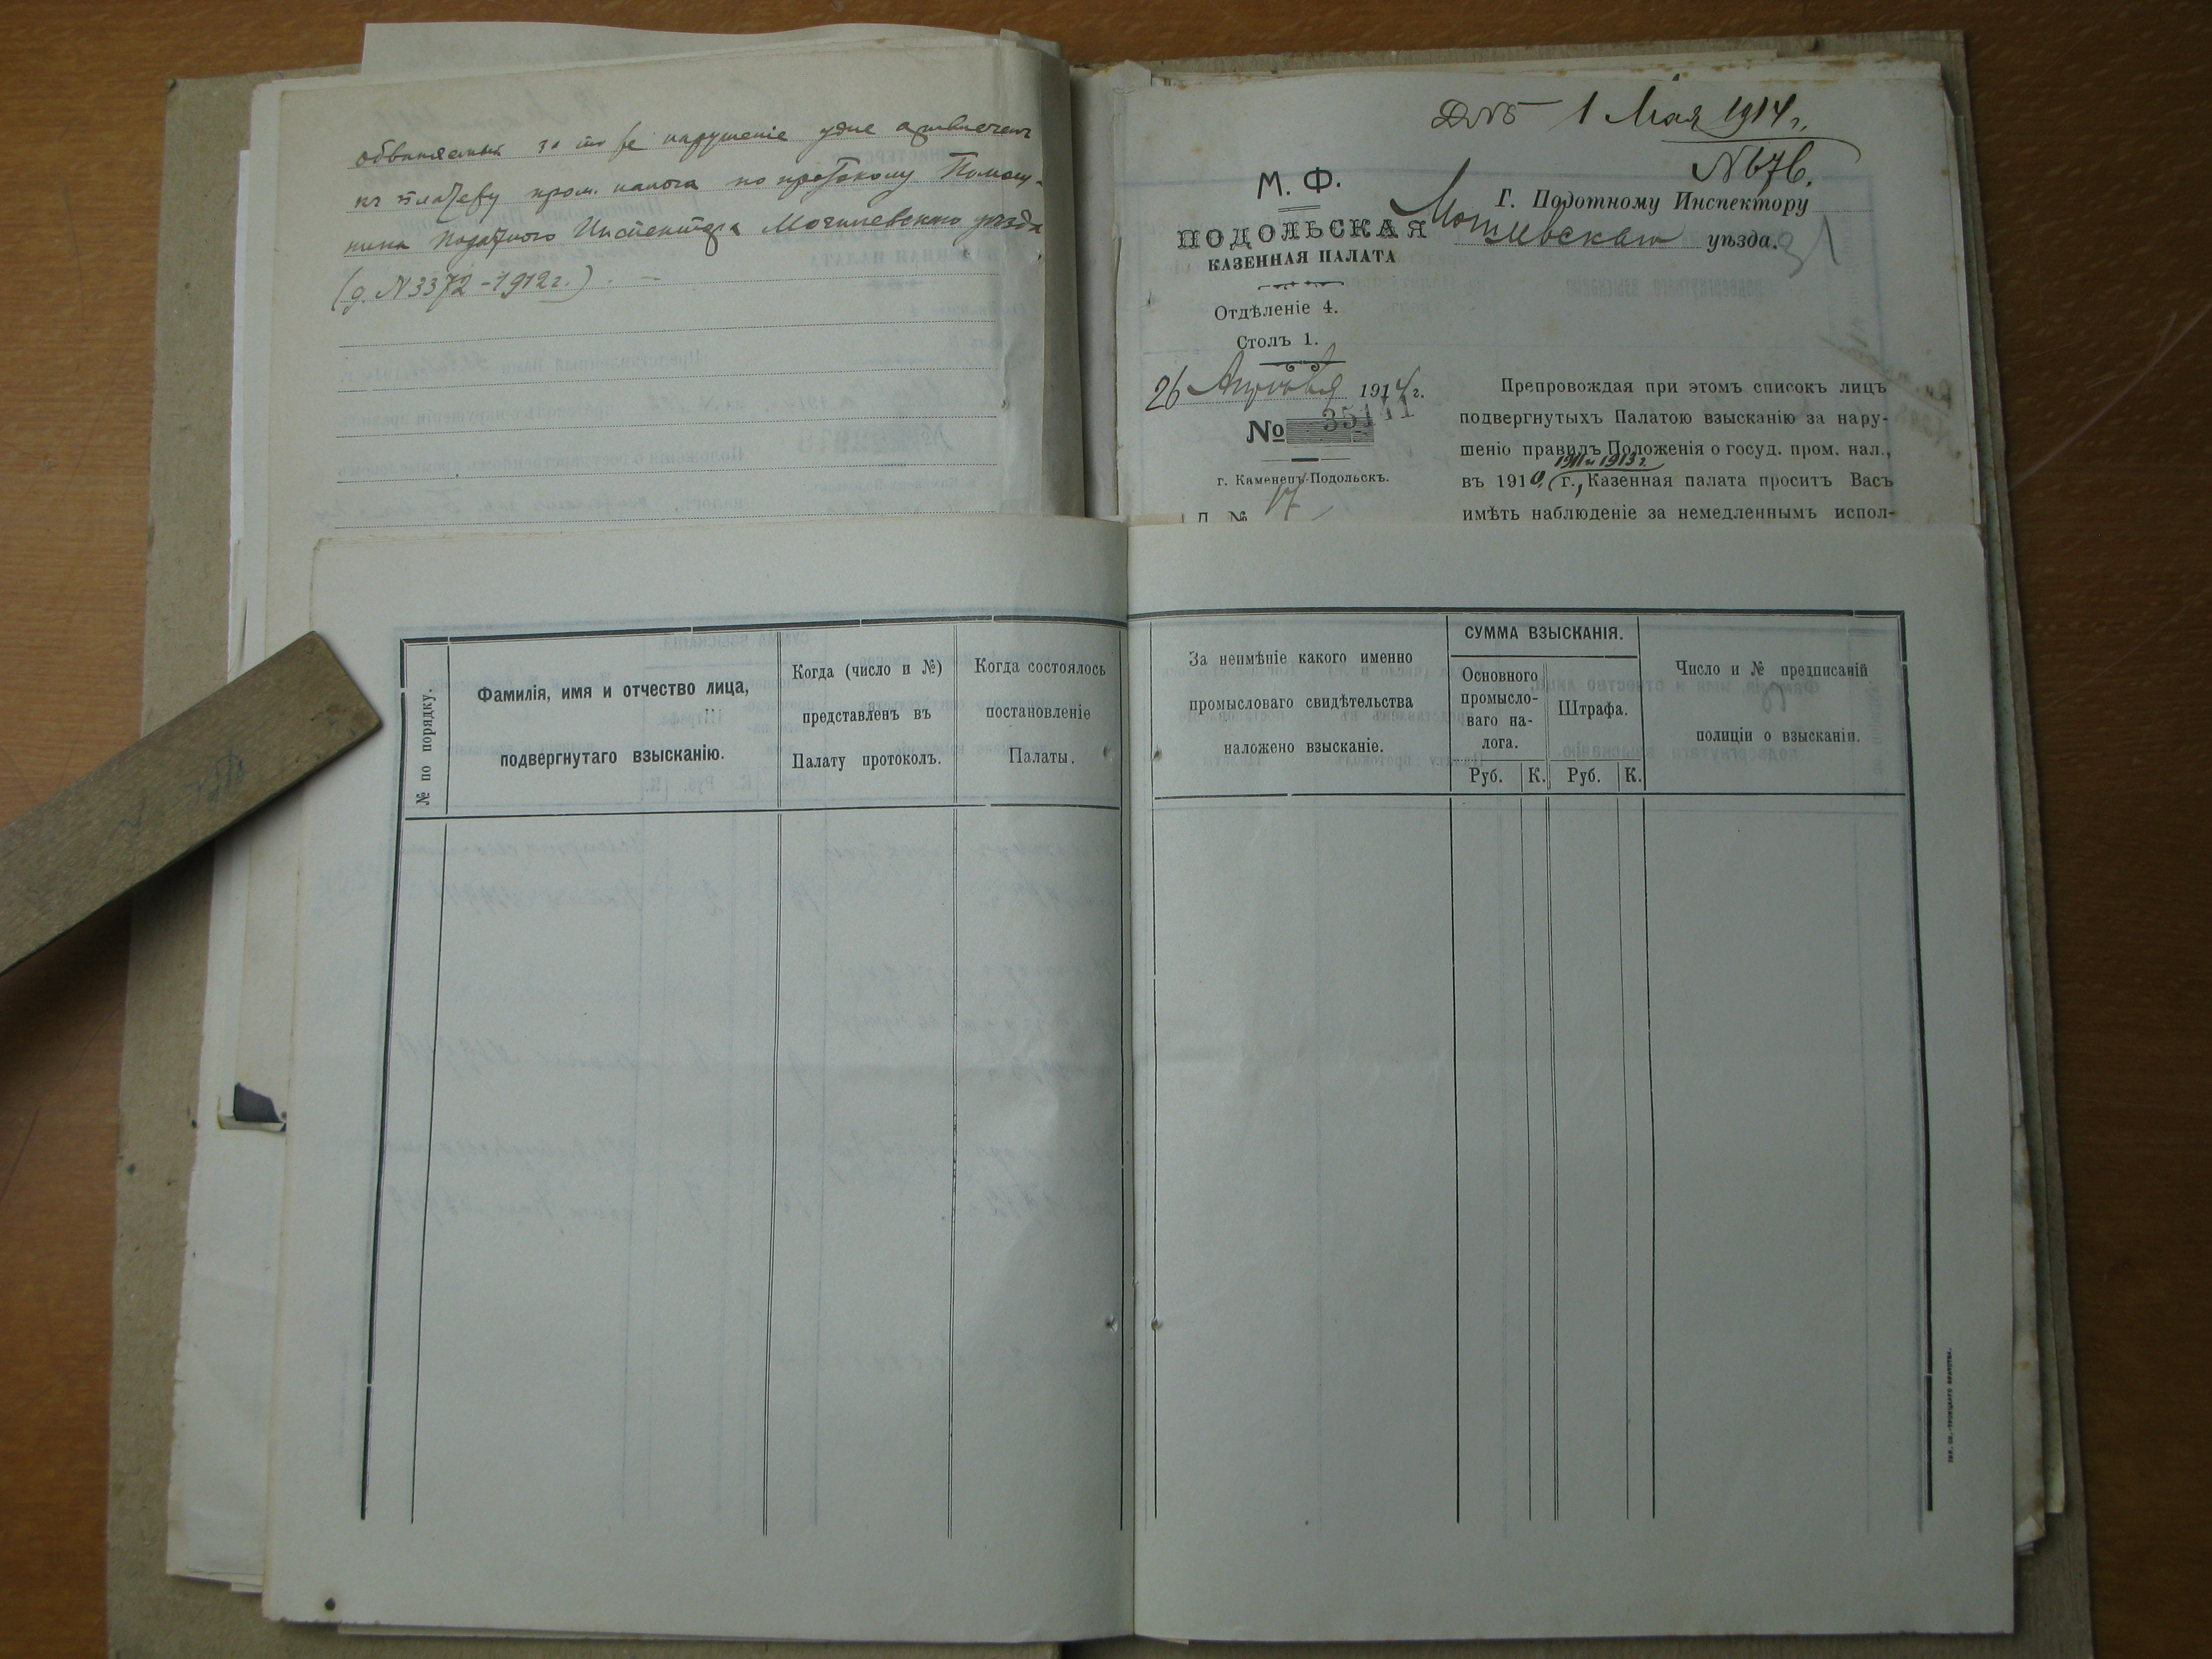 обвиняемый за то же нарушеніе уже привлеченъ
къ платежу пром. налога по протоколу Помощ-
ника Податного Инспектора Могилевскаго уѣзда
(д. № 3372 – 1912 г.).
1 Мая 1914 г.
№ 676.
М. Ф.
ПОДОЛЬСКАЯ
КАЗЕННАЯ ПАЛАТА
Отдѣленіе 4.
Столъ 1.
26 Апрѣля 1914 г.
№ 35141
г. Каменецъ-Подольскъ.
Д. № 17
Г. Податному Инспектору
Могилевскаго уѣзда.
Препровождая при этомъ списокъ лицъ
подвергнутыхъ Палатою взысканію за нару-
шеніо правилъ Положенія о госуд. пром. нал.,
1911 и 1913 г.
въ 1910 г., Казенная палата проситъ Васъ
имѣть наблюденіе за немедленнымъ испол-
№ по порядку.
Фамилія, имя и отчество лица,
подвергнутаго взысканію.
Когда (число и №)
представленъ въ
Палату протоколъ.
Когда состоялось
постановленіе
Палаты.
За неимѣніе какого именно
промысловаго свидѣтельства
наложено взысканіе.
СУММА ВЗЫСКАНІЯ.
Основного
промысло-
ваго на-
лога.
Штрафа.
Руб. К. Руб. К.
Число и № предписаній
полиціи о взысканіи.